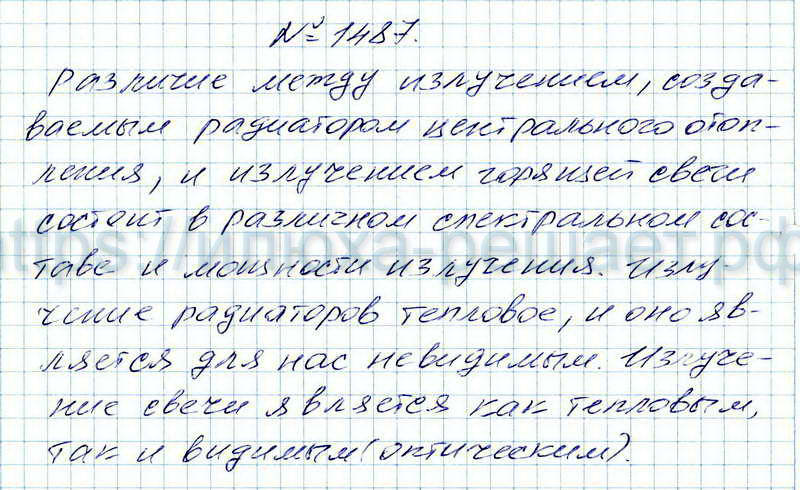 № 1487.
Различие между излучением, созда-
ваемым радиатором центрального отоп-
ления, и излучением горящей свечи
состоит в различном спектральном сос-
https://илюха-решает.рф
таве и мощности излучения. Излу-
чение радиаторов тепловое, и оно яв-
ляется для нас невидимым. Излуче-
ние свечи является как тепловым,
так и видимым (оптическим).